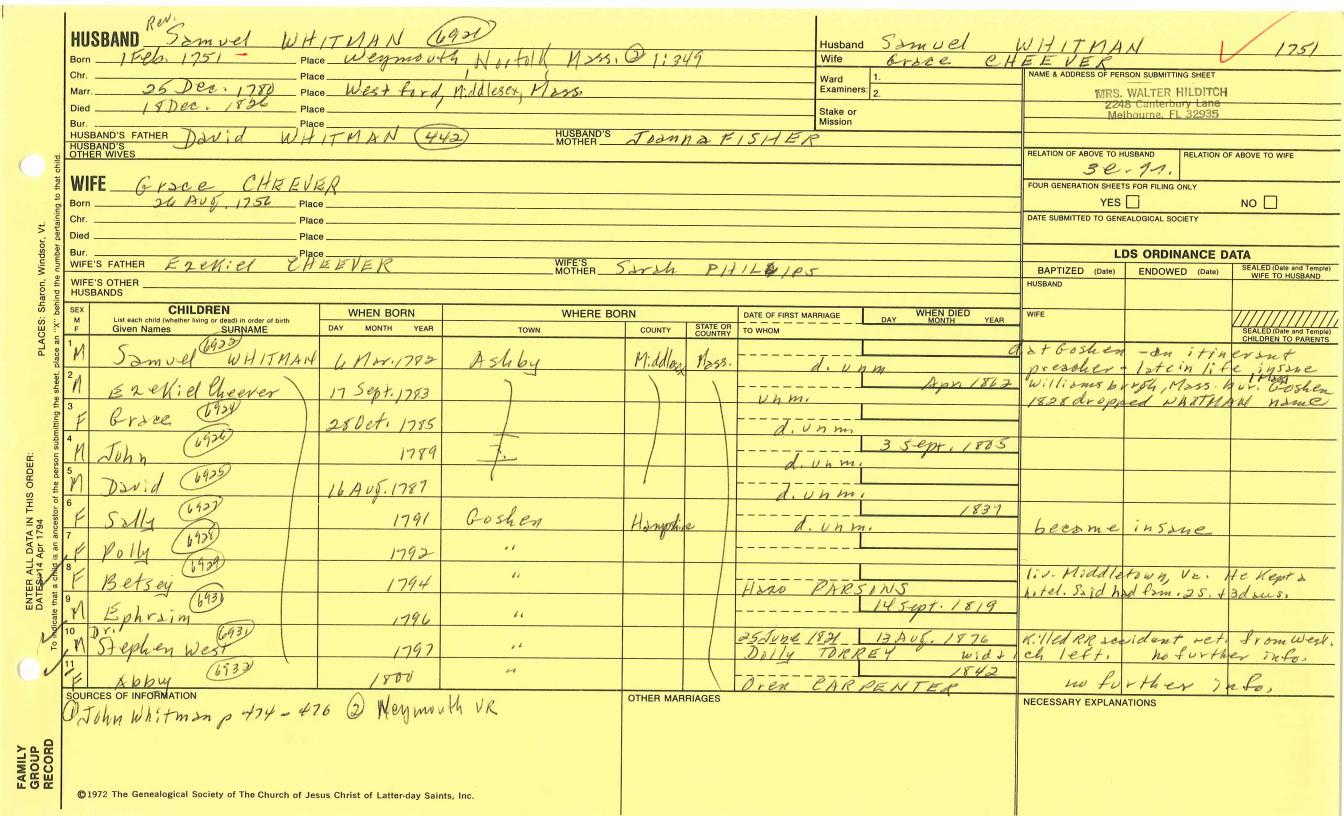 Rev.
HUSBAND Samuel WHITMAN (6921)
Born 1 Feb. 1751 - Place Weymouth, Norfolk, Mass. ② 1:349
Chr. Place
Marr. 25 Dec. 1780 Place Westford, Middlesex, Mass.
Died 18 Dec. 1826 Place
Bur. Place
HUSBAND'S FATHER David WHITMAN (442) HUSBAND'S MOTHER Joanna FISHER
HUSBAND'S OTHER WIVES
WIFE Grace CHEEVER
Born 26 Aug. 1756 Place
Chr. Place
Died Place
Bur. Place
WIFE'S FATHER Ezekiel CHEEVER WIFE'S MOTHER Sarah PHILLIPS
WIFE'S OTHER HUSBANDS
Husband Samuel WHITMAN 1751
Wife Grace CHEEVER
Ward Examiners: 1.
2.
Stake or Mission
NAME & ADDRESS OF PERSON SUBMITTING SHEET
MRS. WALTER HILDITCH
2248 Canterbury Lane
Melbourne, FL 32935
RELATION OF ABOVE TO HUSBAND RELATION OF ABOVE TO WIFE
FOUR GENERATION SHEETS FOR FILING ONLY
YES NO
DATE SUBMITTED TO GENEALOGICAL SOCIETY
LDS ORDINANCE DATA
BAPTIZED (Date) ENDOWED (Date) SEALED (Date and Temple) WIFE TO HUSBAND
HUSBAND
WIFE
SEALED (Date and Temple) CHILDREN TO PARENTS
SEX M F
CHILDREN
List each child (whether living or dead) in order of birth
Given Names SURNAME
WHEN BORN
DAY MONTH YEAR
WHERE BORN
TOWN COUNTY STATE OR COUNTRY
DATE OF FIRST MARRIAGE
TO WHOM
WHEN DIED
DAY MONTH YEAR
1 M Samuel (6922) WHITMAN 6 Mar. 1782 Ashby Middlesex Mass. d. unm. d at Goshen - an itinerant preacher - late in life insane
2 M Ezekiel Cheever 17 Sept. 1783 unm. Apr 1862 Williamsburgh, Mass. bur. Goshen
1828 dropped WHITMAN name
3 F Grace (6924) 28 Oct. 1785 d. unm.
4 M John (6926) 1789 d. unm. 3 Sept. 1805
5 M David (6925) 16 Aug. 1787 d. unm.
6 F Sally (6927) 1791 Goshen Hampshire d. unm. 1837 became insane
7 F Polly (6928) 1792 "
8 F Betsey (6929) 1794 " PARSONS liv. Middletown, Vt. He kept a hotel. Said had fam. 2s. + 3 daus.
9 M Ephraim (6930) 1796 " 14 Sept. 1819
10 M Dr. Stephen West (6931) 1797 " 25 June 1821 Dolly TORREY 13 Aug. 1876 Killed RR accident ret. from West.
wid & ch left. no further info.
11 F Abby (6932) 1800 " Oren CARPENTER 1842 no further info.
SOURCES OF INFORMATION
① John Whitman p 474 - 476 ② Weymouth VR
OTHER MARRIAGES
NECESSARY EXPLANATIONS
©1972 The Genealogical Society of The Church of Jesus Christ of Latter-day Saints, Inc.
FAMILY GROUP RECORD
ENTER ALL DATA IN THIS ORDER:
DATES: 14 Apr 1794
PLACES: Sharon, Windsor, Vt.
To indicate that a child is an ancestor of the person submitting the sheet, place an "X" behind the number pertaining to that child.